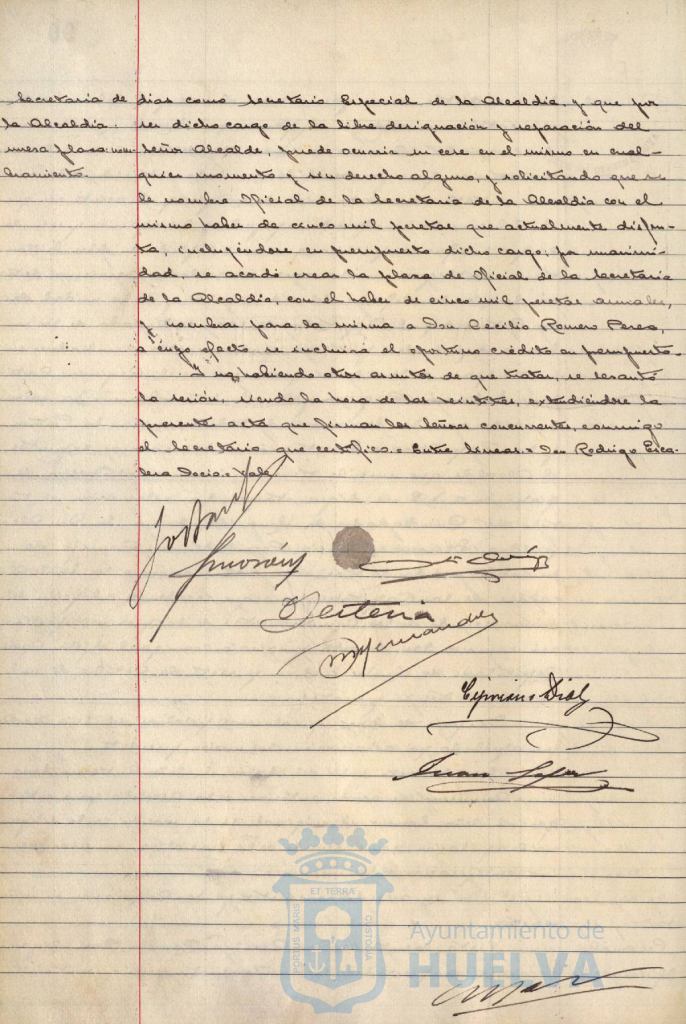 Secretaria de
la Alcaldia.
nueva plaza: nom-
bramiento.
dias como Secretario Especial de la Alcaldia, y que por
ser dicho cargo de la libre designación y separación del
Señor Alcalde, puede ocurrir su cese en el mismo en cual-
quier momento y sin derecho alguno, y solicitando que se
le nombre Oficial de la Secretaria de la Alcaldia con el
mismo haber de cinco mil pesetas que actualmente disfru-
ta, incluyéndose en presupuesto dicho cargo; por unanimi-
dad, se acordó crear la plaza de Oficial de la Secretaria
de la Alcaldia, con el haber de cinco mil pesetas anuales,
y nombrar para la misma a Don Cecilio Romero Perea,
a cuyo efecto se incluirá el oportuno crédito en presupuesto.
Y no habiendo otros asuntos de que tratar, se levantó
la sesión, siendo la hora de las veintitres, extendiéndose la
presente acta que firman los Señores concurrentes, conmigo
el Secretario que certifico.= Entre lineas= Don Rodrigo Esca-
lera Vale
Hernandez
Cipriano Diaz
Juan
ET TERRA
PORTUS MARIS
CUSTODIA
Ayuntamiento de
HUELVA